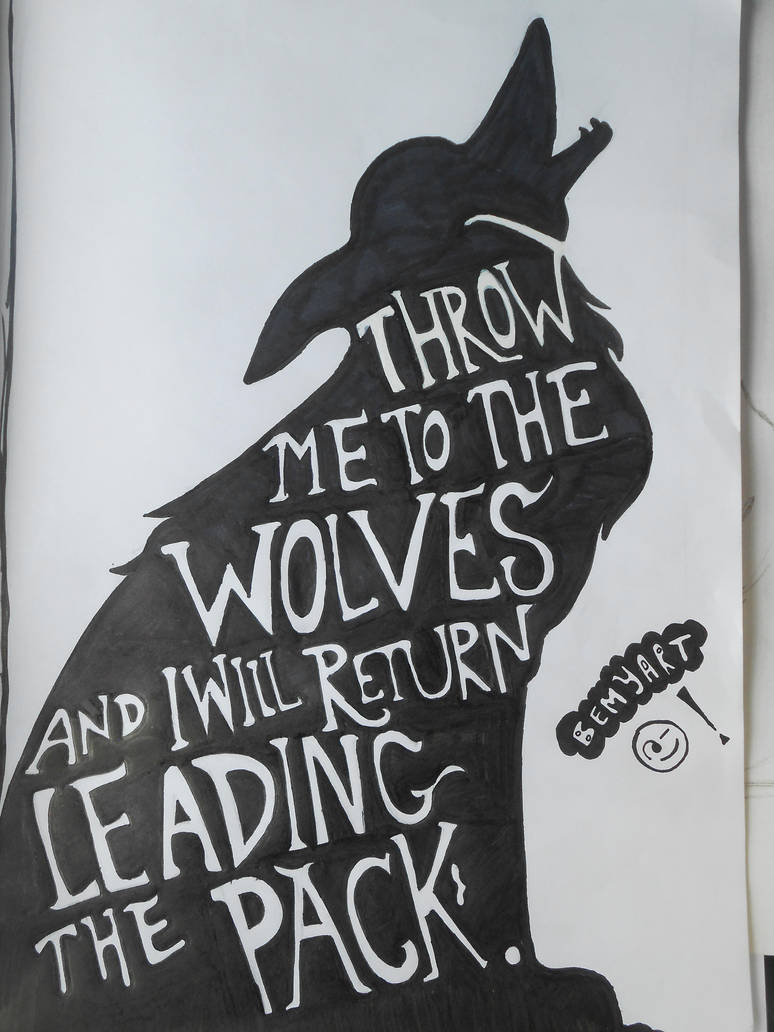 THROW
ME TO THE
WOLVES
AND I WILL RETURN
LEADING
THE PACK.
BEMYART
!